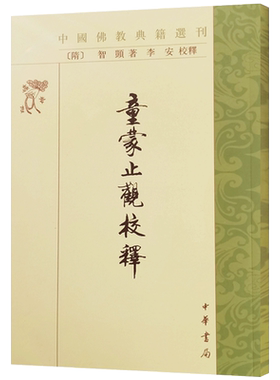 中國佛教典籍選刊
〔隋〕智顗著 李安校釋
童蒙止觀校釋
中華書局